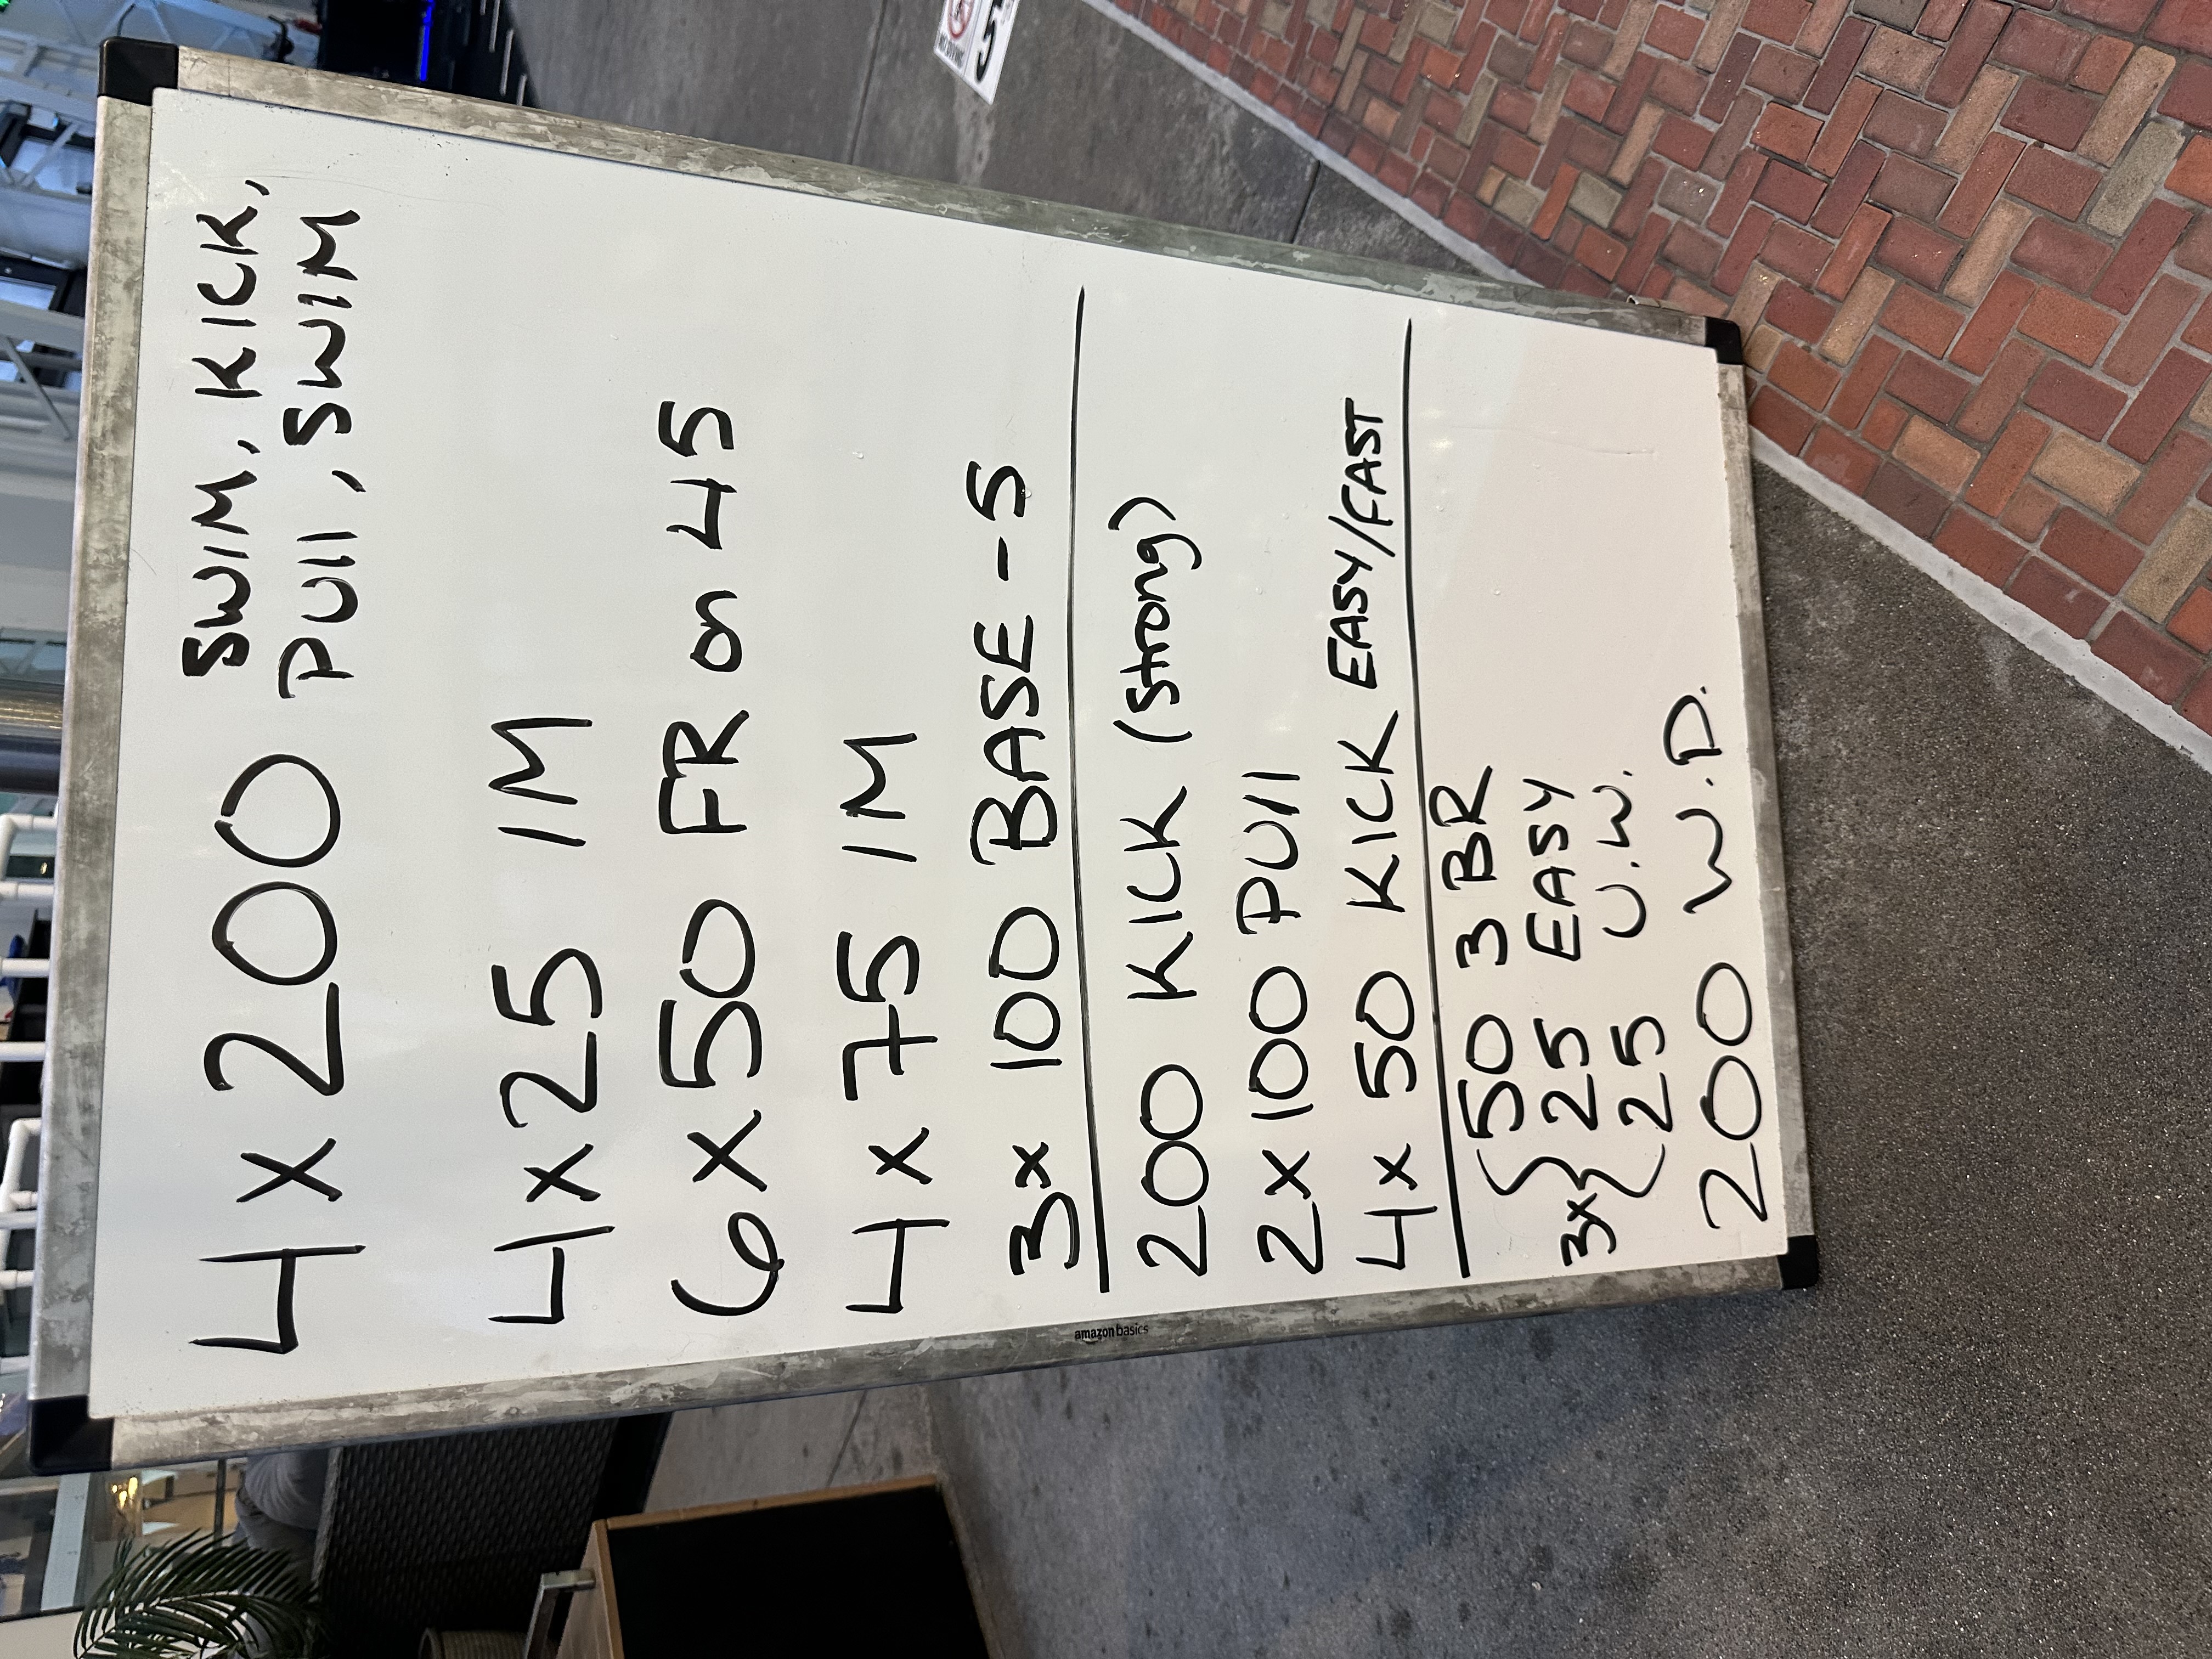 4 x 200 SWIM, KICK,
PUll, SWIM
4 x 25 IM
6 x 50 FR on 45
4 x 75 IM
3x 100 BASE - 5
200 KICK (Strong)
2 x 100 PUll
4 x 50 KICK EASY/FAST
50 3 BR
3x 25 EASY
25 U.W.
200 W.D.
amazon basics
5